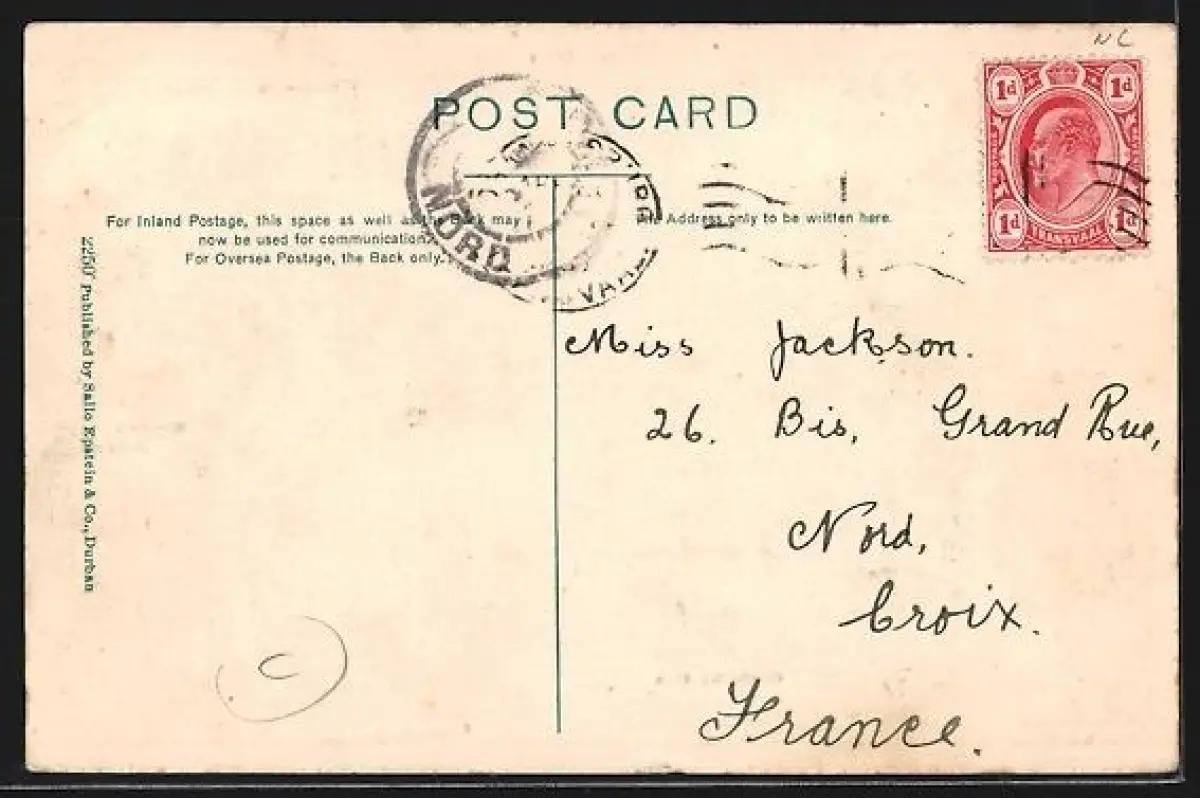 NC
POST CARD
1d 1d
1d 1d
TRANSVAAL
For Inland Postage, this space as well as the Back may
now be used for communication.
For Oversea Postage, the Back only.
The Address only to be written here.
NORD
2250 Published by Sallo Epstein & Co., Durban
Miss Jackson.
26. Bis, Grand Rue,
Nord,
Croix.
France.